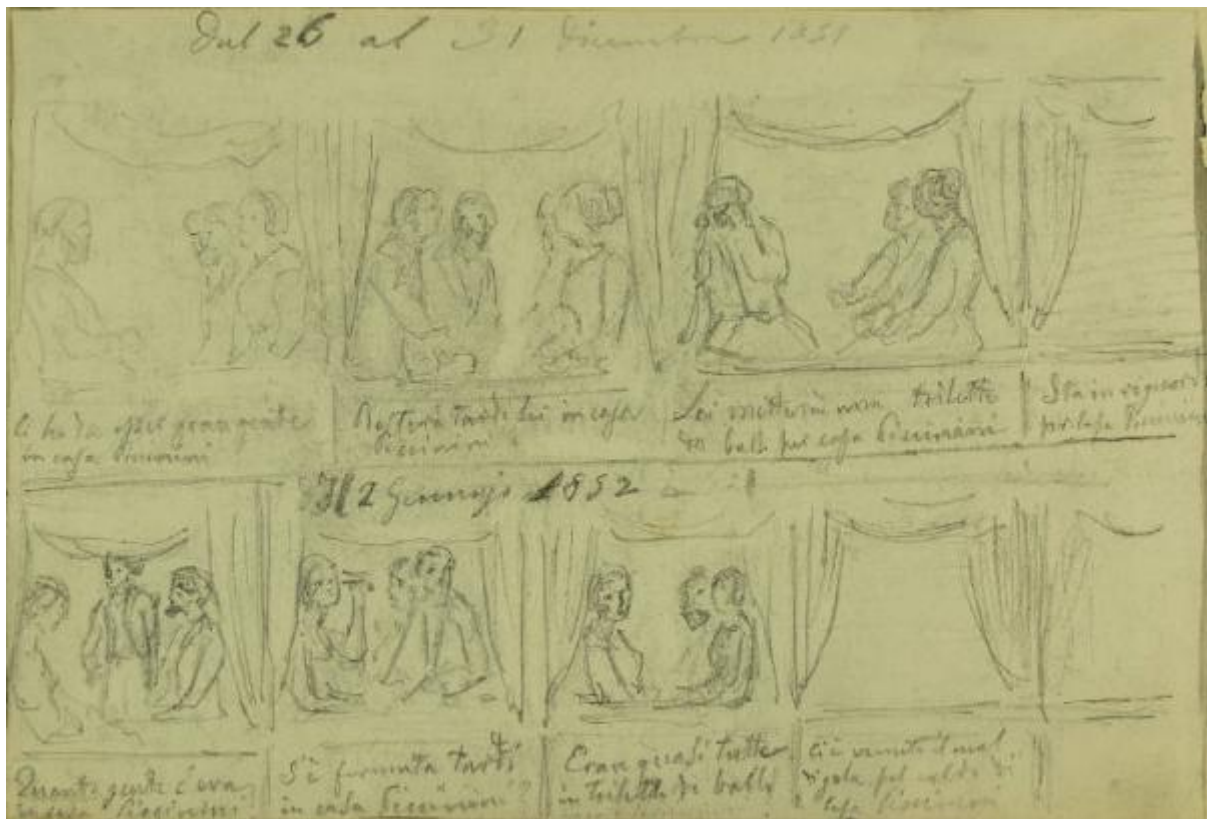 Dal 26 al 31 dicembre 1851
Ci ha da esser gran gente
in casa Piccinini
Resterà tardi lei in casa
Piccinini
Lei metterà una toiletta
da ballo per casa Piccinini
Sta in
per casa Piccinini
Il 2 Gennajo 1852
Quanta gente c'era
in casa Piccinini
S'è fermata tardi
in casa Piccinini
Eran quasi tutte
in toilette di ballo
Ci è venuto il mal
di gola pel caldo di
casa Piccinini